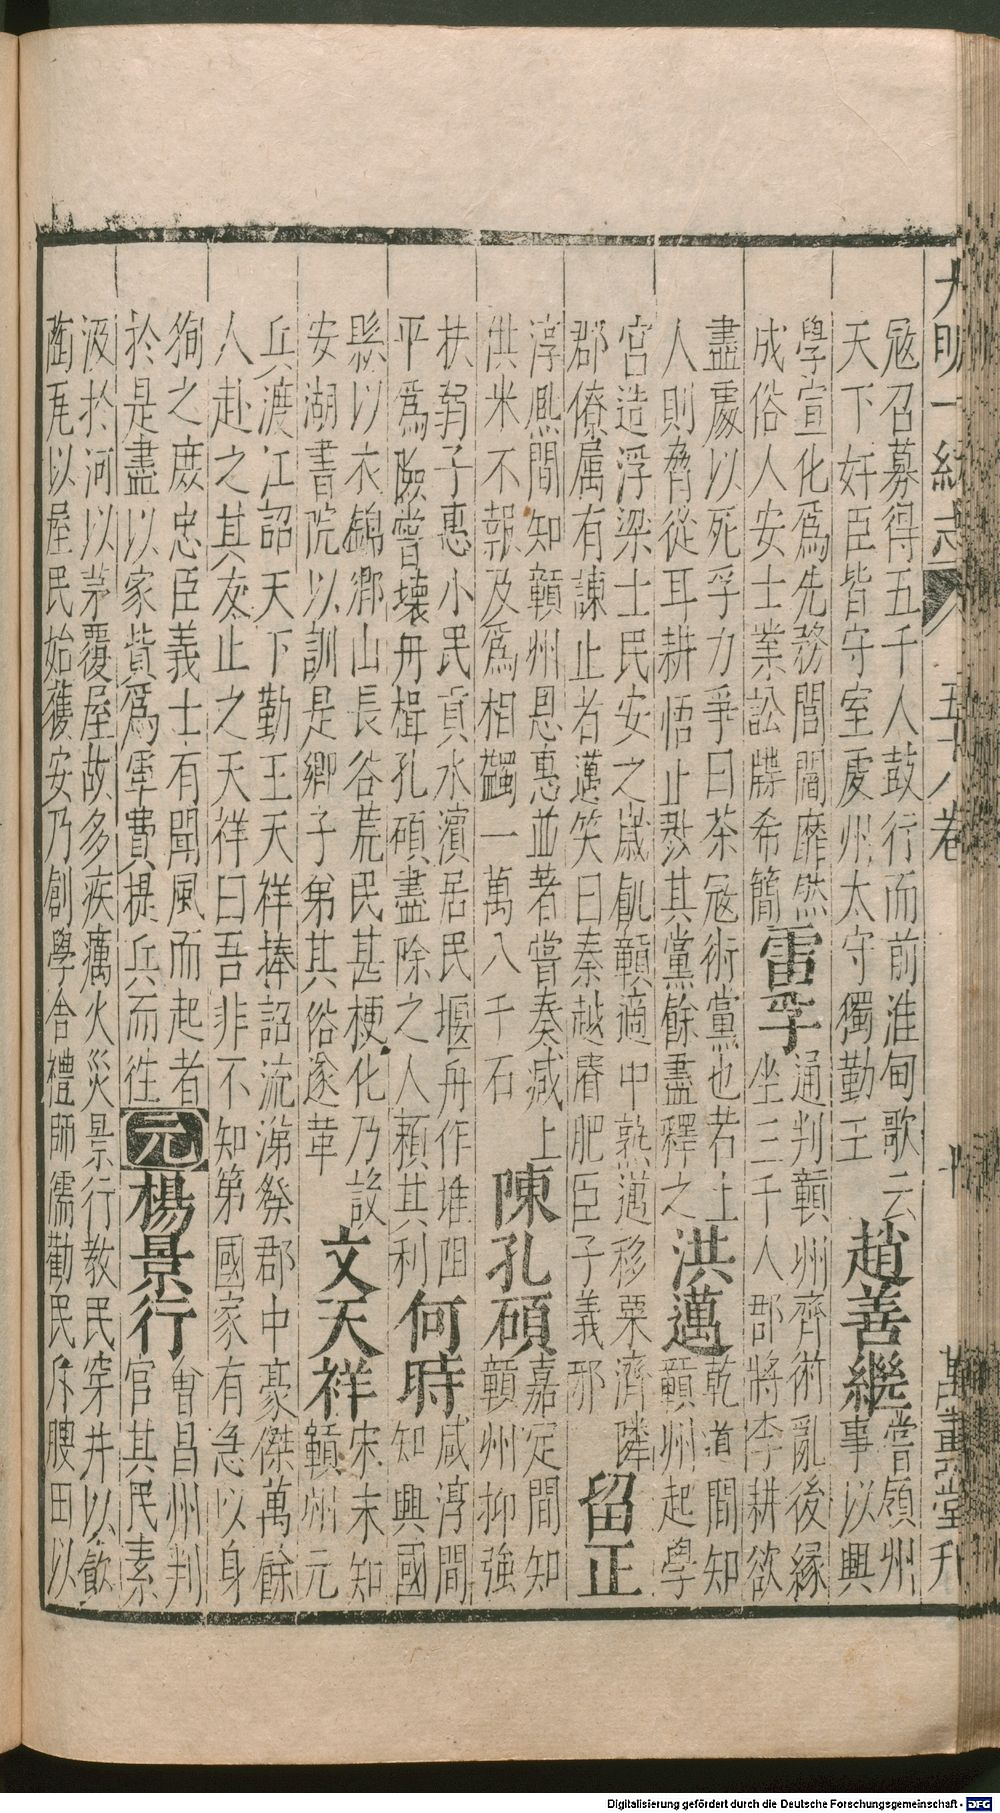 大明一統志 五十八卷 十 萬壽堂刋
冦召募得五千人鼓行而前淮甸歌云
天下奸臣皆守室虔州太守獨勤王
趙善繼
嘗領州
事以興
學宣化爲先務閭閻靡然
成俗人安士業訟牒希簡
雷孚
通判贑州齊術亂後緣
坐三千人郡將李耕欲
盡䖏以死孚力爭曰茶冦術黨也若士
人則脅從耳耕悟止㓨其黨餘盡釋之
洪邁
乾道間知
贑州起學
宮造浮梁士民安之歲飢贑適中熟邁移粟濟隣
郡僚属有諫止者邁笑曰秦越瘠肥臣子義邪
留正
淳熈間知贑州恩惠並著嘗奏减上
供米不報及爲相蠲一萬八千石
陳孔碩
嘉定間知
贑州抑強
扶弱子惠小民貢水濱居民堰舟作堆阻
平爲險嘗壊舟楫孔碩盡除之人頼其利
何時
咸淳間
知興國
縣以衣錦郷山長谷荒民甚梗化乃設
安湖書院以訓是郷子弟其俗遂革
文天祥
宋末知
贑州元
兵渡江詔天下勤王天祥捧詔流涕發郡中豪傑萬餘
人赴之其友止之天祥曰吾非不知第國家有急以身
狥之庶忠臣義士有聞風而起者
於是盡以家貲爲軍費提兵而徃
元
楊景行
㑹昌州判
官其民素
汲於河以茅覆屋故多疾癘火災景行教民穿井以飲
陶瓦以屋民始獲安乃創學舍禮師儒勸民斥腴田以
Digitalisierung gefördert durch die Deutsche Forschungsgemeinschaft - DFG